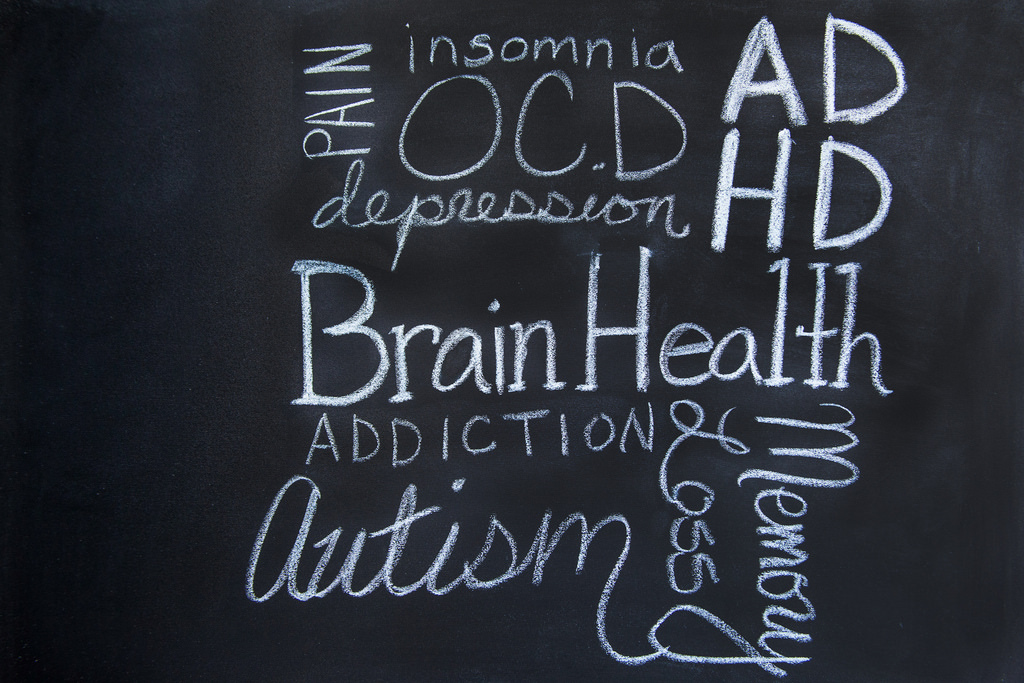 PAIN
insomnia
OC.D
depression
AD
HD
Brain Health
ADDICTION
Autism
Memory
Loss